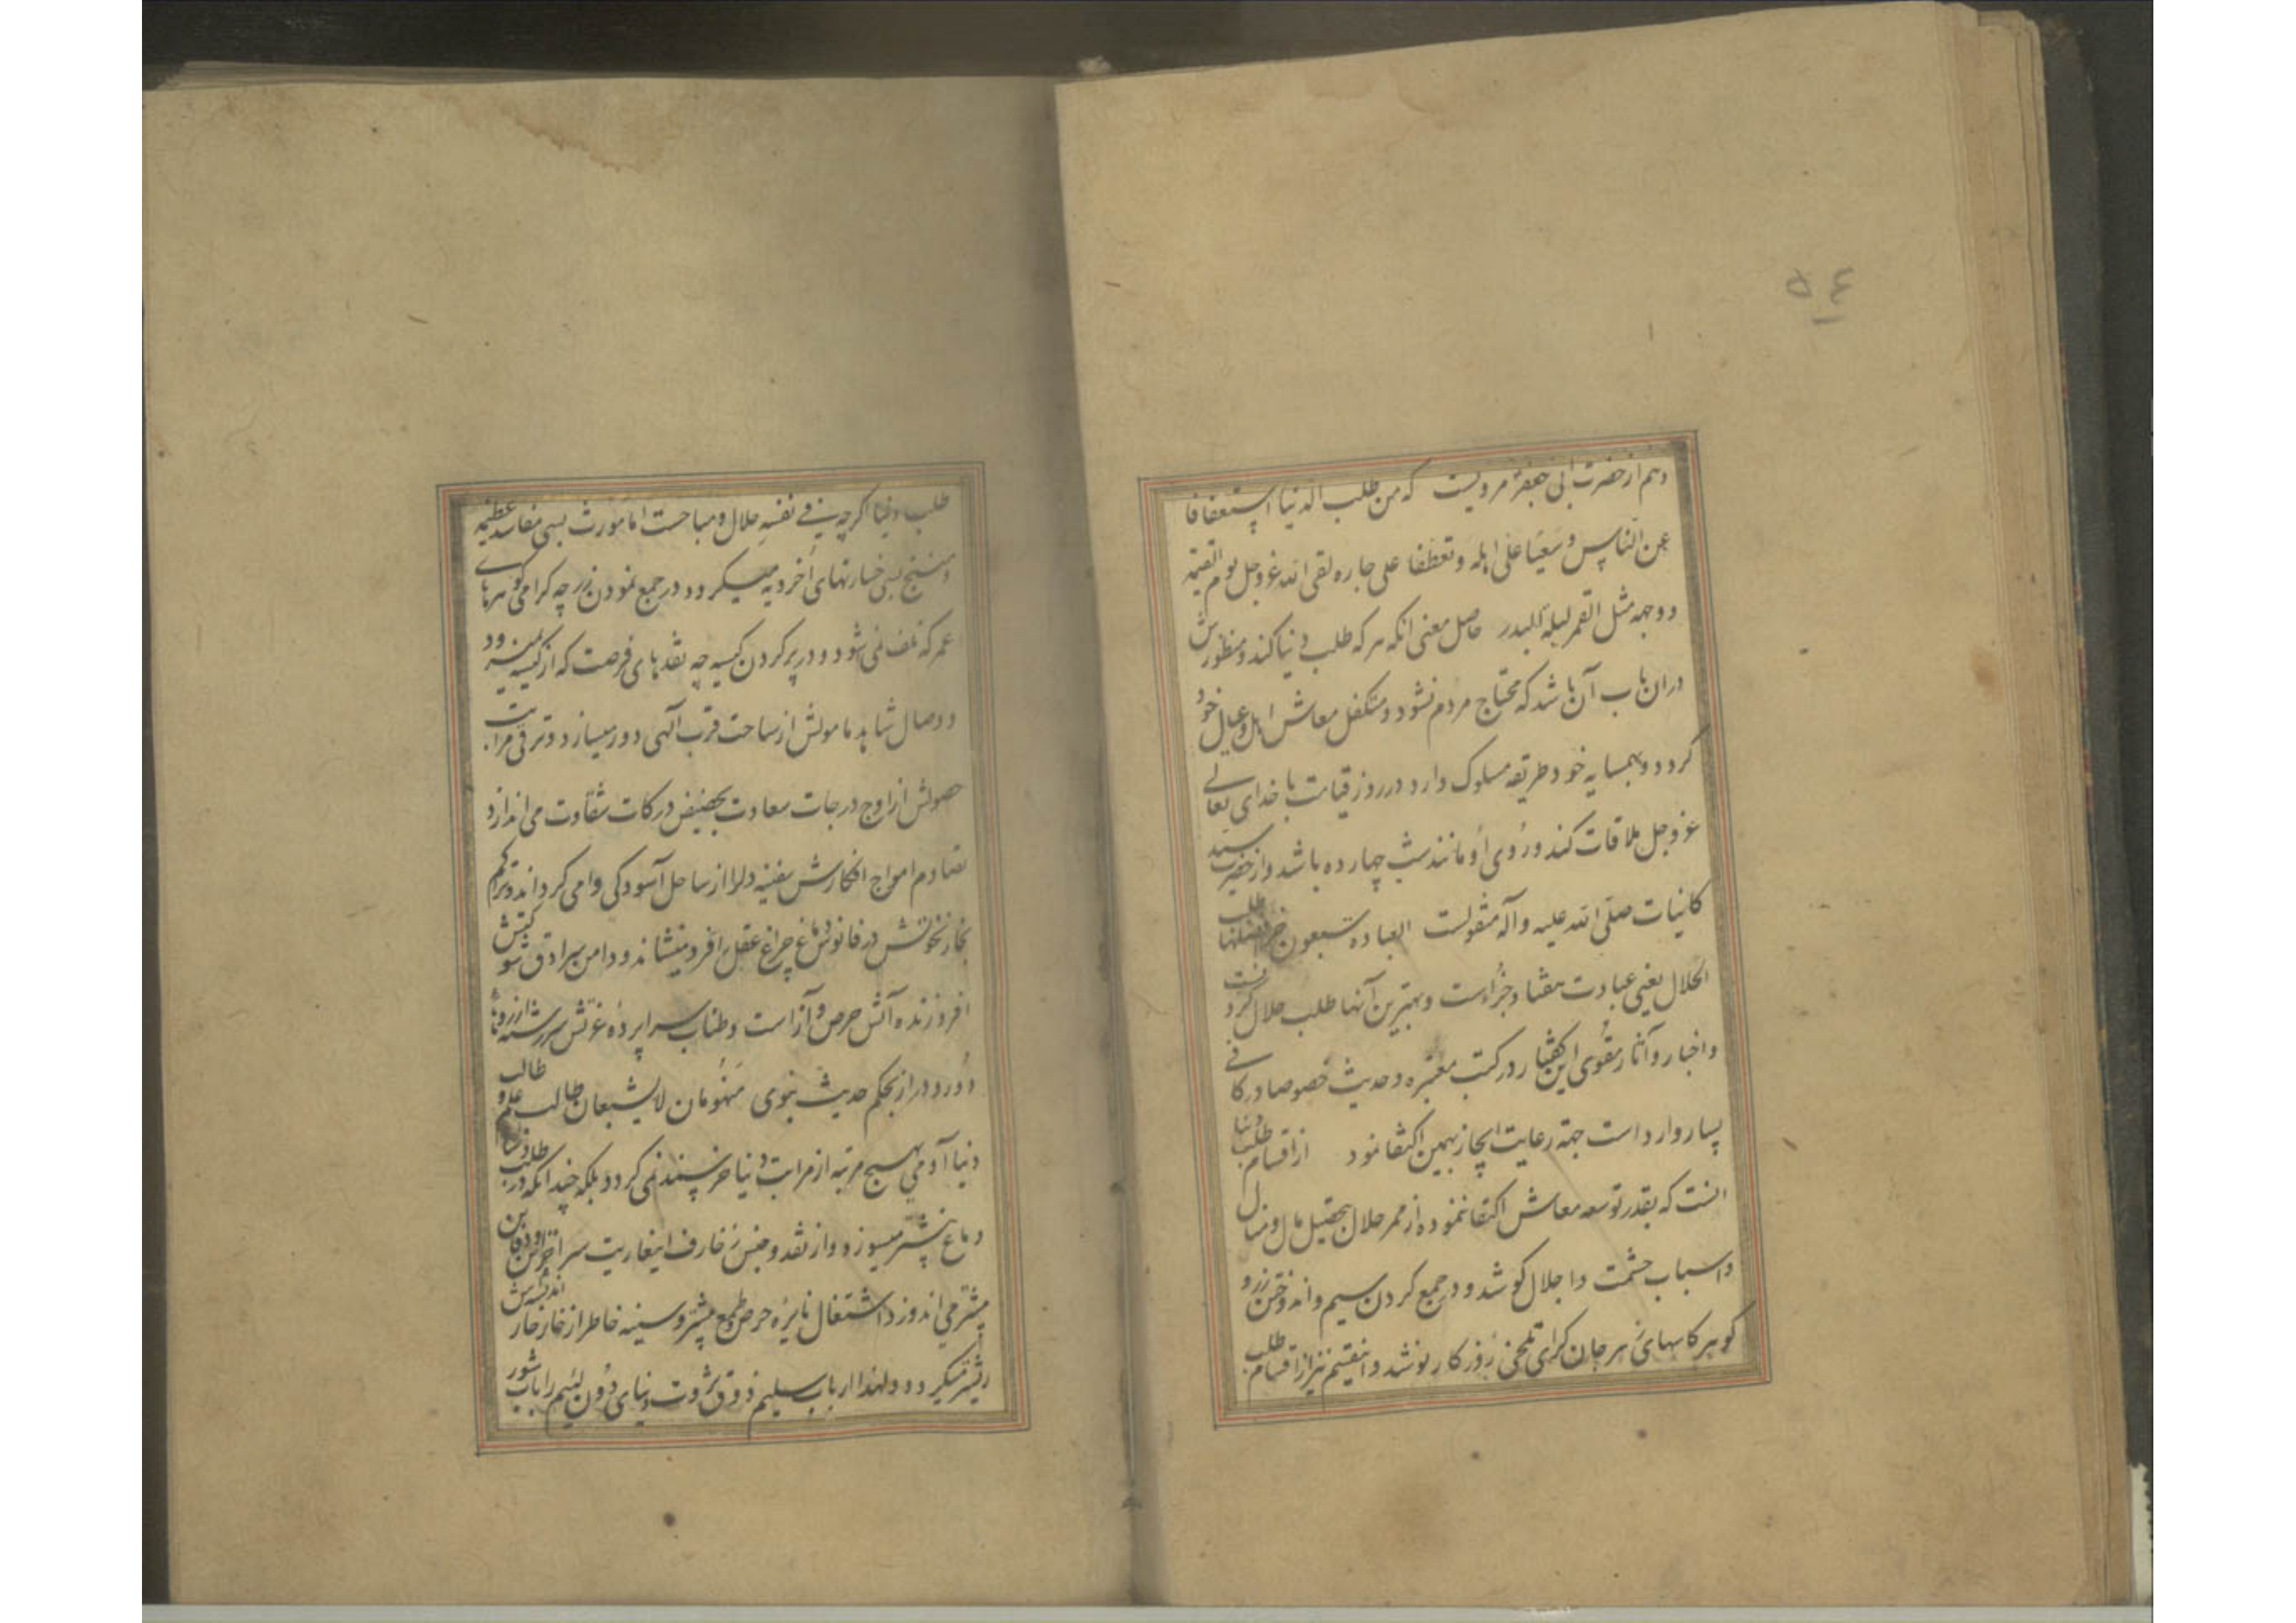 ۵۴
وهم از حضرت ابی جعفر مرویست که من طلب الدنیا استعفافا
عن الناس و سعیا علی اهله و تعطفا علی جاره لقی الله عز وجل یوم القیمة
و وجهه مثل القمر لیلة البدر حاصل معنی انکه هر که طلب دنیا کند و منظورش
دران باب آن باشد که محتاج مردم نشود و متکفل معاش اهل و عیال خود
کردد و بهمسایه خود طریقه سلوک دارد در روز قیامت با خدای تعالی
عز وجل ملاقات کند و روی او مانند شب چهارده باشد و از حضرت سید
کاینات صلی الله علیه و آله منقولست العبادة سبعون جزءا افضلها طلب
الحلال یعنی عبادت هفتاد جزء است و بهترین آنها طلب حلال کردنست
و اخبار و آثار مقوی این گفتار در کتب معتبره و حدیث خصوصا در کافی
بسیار وارد است جهة رعایت ایجاز بهمین اکتفا نمود از اقسام طلب دنیا
انست که بقدر توسعه معاش اکتفا ننموده از ممر حلال بتحصیل مال و منال
و اسباب حشمت و اجلال کوشد و در جمع کردن سیم و اندوختن زر و
کوهر کاسهای زهر جان کزای تلخی روزکار نوشد و اینقسم نیز از اقسام طلب
طلب دنیا اکرچه فی نفسه حلال و مباحست اما مورث بسی مفاسد عظیمه
و منتج بسی خسارتهای اخرویه میکردد در جمع نمودن زر چه کرامی کوهرهای
عمر که تلف نمی شود و در پر کردن کیسه چه نقدهای فرصت که از کیسه نمیرود
و وصال شاهد مامولش از ساحت قرب آلهی دور میسازد و ترقی مراتب
حصولش از اوج درجات سعادت بحضیض درکات شقاوت می اندازد
تصادم امواج افکارش سفینه دلرا از ساحل آسودکی وا می کرداند و تراکم
بخار نخوتش در فانوس دماغ چراغ عقل را فرو مینشاند و دامن سرادق
افروزنده آتش حرص و آز است و طناب سراپرده عزتش سر رشته ارزوهای
دور و دراز بحکم حدیث نبوی منهومان لا یشبعان طالب علم و طالب
دنیا آدمی بهیچ مرتبه از مراتب دنیا خرسند نمی کردد بلکه چندانکه در طلب دنیا
دماغ بیشتر میسوزد و از نقد و جنس زخارف اینعاریت سرا
بیشتر می اندوزد اشتغال نایره حرص و طمع بیشتر و سینه خاطر از خار خار اندیشه اش
ریشتر میکردد و لهذا ارباب سلیم ذوق ثروت دنیای دون لئیم را باب شور